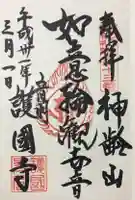 奉拝
神齢山
如意輪観世音
音羽
護國寺
平成卅一年
三月一日